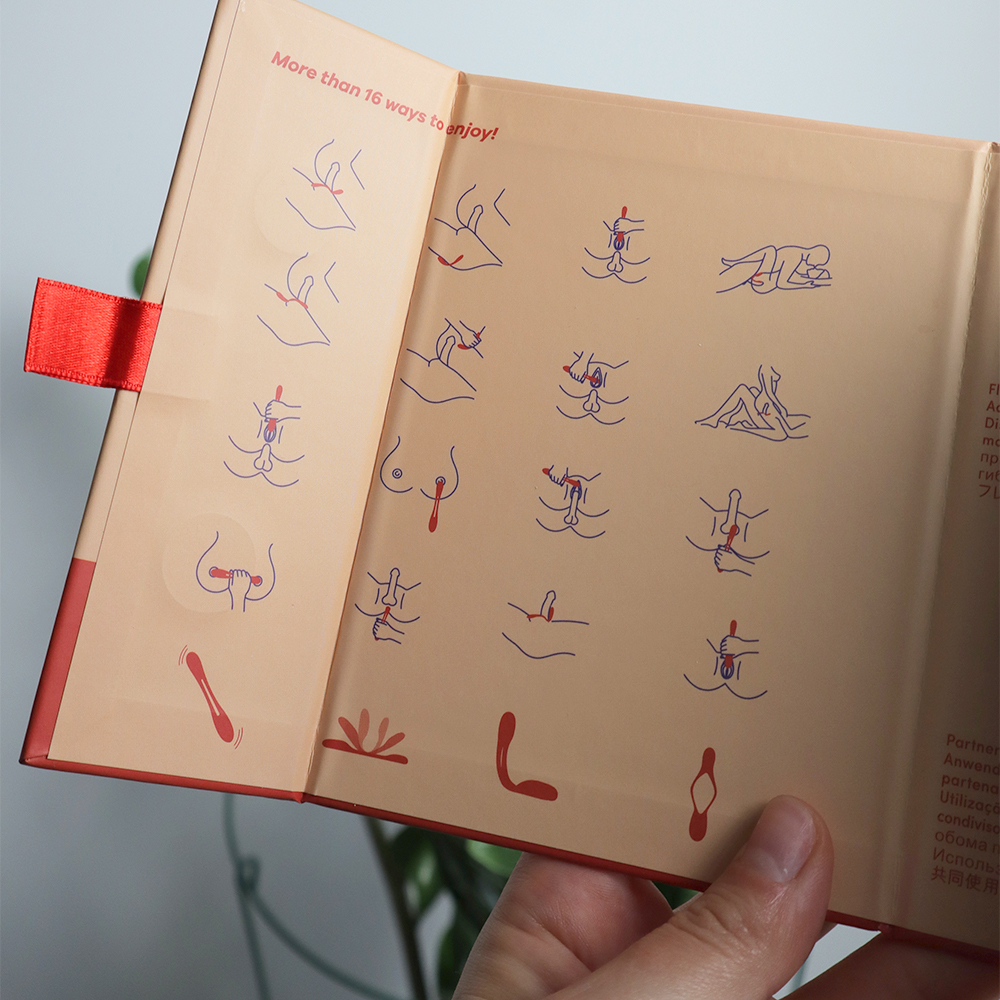 More than 16 ways to enjoy!
Partner
Anwend
parteno
Utilizaçã
condivisa
обома п
Использ
共同使用